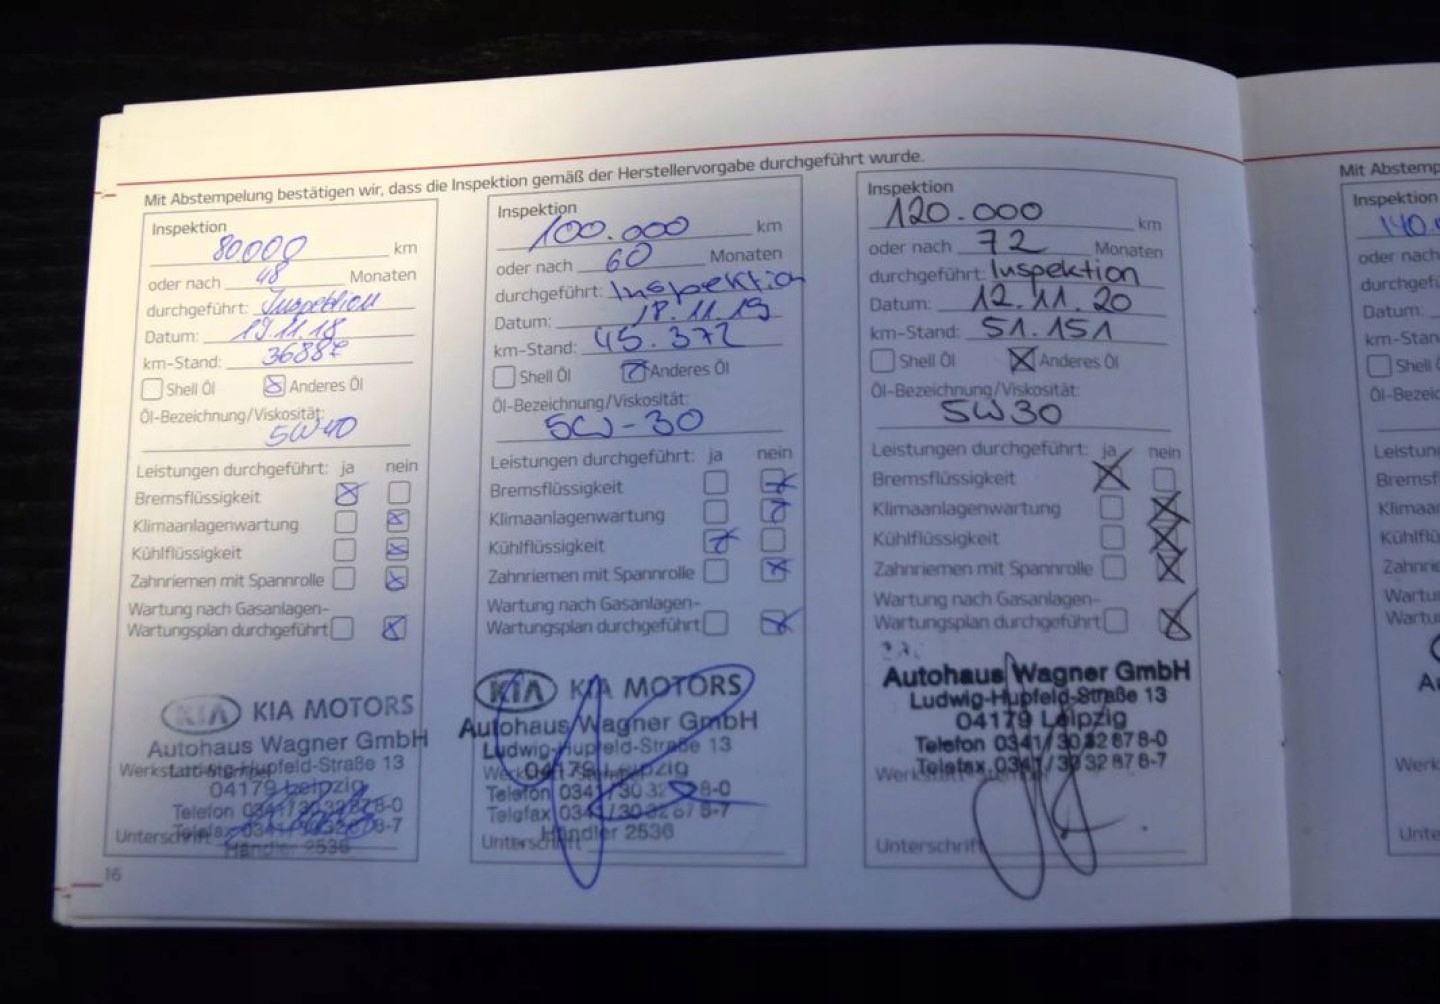 Mit Abstempelung bestätigen wir, dass die Inspektion gemäß der Herstellervorgabe durchgeführt wurde.
Inspektion
80000 km
oder nach 48 Monaten
durchgeführt: Inspektion
Datum: 19.11.18
km-Stand:
Shell Öl Anderes Öl
Öl-Bezeichnung/Viskosität:
5W40
Leistungen durchgeführt: ja nein
Bremsflüssigkeit
Klimaanlagenwartung
Kühlflüssigkeit
Zahnriemen mit Spannrolle
Wartung nach Gasanlagen-
Wartungsplan durchgeführt
KIA KIA MOTORS
Autohaus Wagner GmbH
Ludwig-Hupfeld-Straße 13
04179 Leipzig
Telefon 0341/30 32 87 8-0
Telefax 0341/30 32 87 8-7
Händler 2536
Unterschrift
16
Inspektion
100.000 km
oder nach 60 Monaten
durchgeführt: Inspektion
Datum: 18.11.19
km-Stand: 45.372
Shell Öl Anderes Öl
Öl-Bezeichnung/Viskosität:
5W-30
Leistungen durchgeführt: ja nein
Bremsflüssigkeit
Klimaanlagenwartung
Kühlflüssigkeit
Zahnriemen mit Spannrolle
Wartung nach Gasanlagen-
Wartungsplan durchgeführt
KIA KIA MOTORS
Autohaus Wagner GmbH
Ludwig-Hupfeld-Straße 13
04179 Leipzig
Telefon 0341/30 32 87 8-0
Telefax 0341/30 32 87 8-7
Händler 2536
Unterschrift
Inspektion
120.000 km
oder nach 72 Monaten
durchgeführt: Inspektion
Datum: 12.11.20
km-Stand: 51.151
Shell Öl Anderes Öl
Öl-Bezeichnung/Viskosität:
5W30
Leistungen durchgeführt: ja nein
Bremsflüssigkeit
Klimaanlagenwartung
Kühlflüssigkeit
Zahnriemen mit Spannrolle
Wartung nach Gasanlagen-
Wartungsplan durchgeführt
Autohaus Wagner GmbH
Ludwig-Hupfeld-Straße 13
04179 Leipzig
Telefon 0341/30 32 87 8-0
Telefax 0341/30 32 87 8-7
Unterschrift
Mit Abstemp
Inspektion
140.
oder nach
durchgefü
Datum:
km-Stan
Shell
Öl-Bezeic
Leistun
Bremsf
Klimaa
Kühlflü
Zahnrie
Wartu
Wartu
Au
Werk
Unte